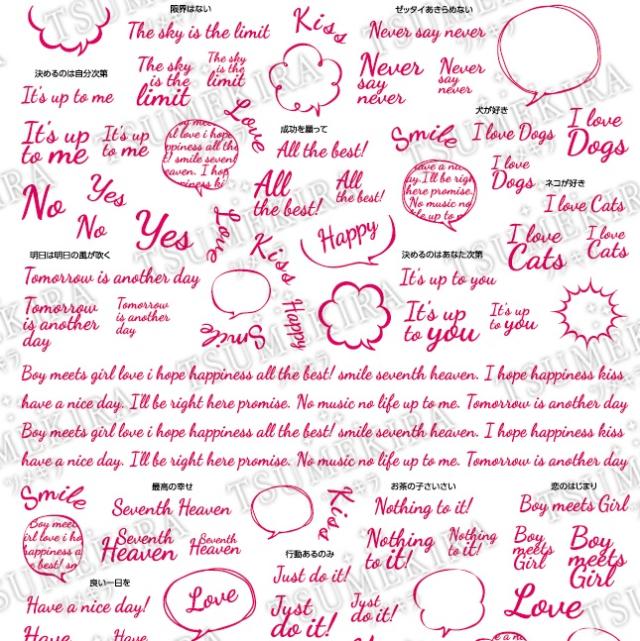 限界はない
The sky is the limit
Kiss
ゼッタイあきらめない
Never say never
決めるのは自分次第
It's up to me
The sky
is the
limit
The sky
is the
limit
Love
Never
say
never
Never
say
never
犬が好き
I love Dogs
I love
Dogs
It's up
to me
It's up
to me
成功を願って
All the best!
Smile
I love
Dogs
ネコが好き
I love Cats
No
Yes
No
Yes
All
the best!
All
the best!
Love
Kiss
Happy
I love
Cats
I love
Cats
明日は明日の風が吹く
Tomorrow is another day
決めるのはあなた次第
It's up to you
Tomorrow
is another
day
Tomorrow
is another
day
Smile
Happy
It's up
to you
It's up
to you
Boy meets girl love i hope happiness all the best! smile seventh heaven. I hope happiness kiss
have a nice day. I'll be right here promise. No music no life up to me. Tomorrow is another day
Boy meets girl love i hope happiness all the best! smile seventh heaven. I hope happiness kiss
have a nice day. I'll be right here promise. No music no life up to me. Tomorrow is another day
Smile
最高の幸せ
Seventh Heaven
Kiss
お茶の子さいさい
Nothing to it!
恋のはじまり
Boy meets Girl
Seventh
Heaven
Seventh
Heaven
行動あるのみ
Just do it!
Nothing
to it!
Nothing
to it!
Boy
meets
Girl
Boy
meets
Girl
良い一日を
Have a nice day!
Love
Just
do it!
Just
do it!
Love
Have
Have
TSUMEKIRA